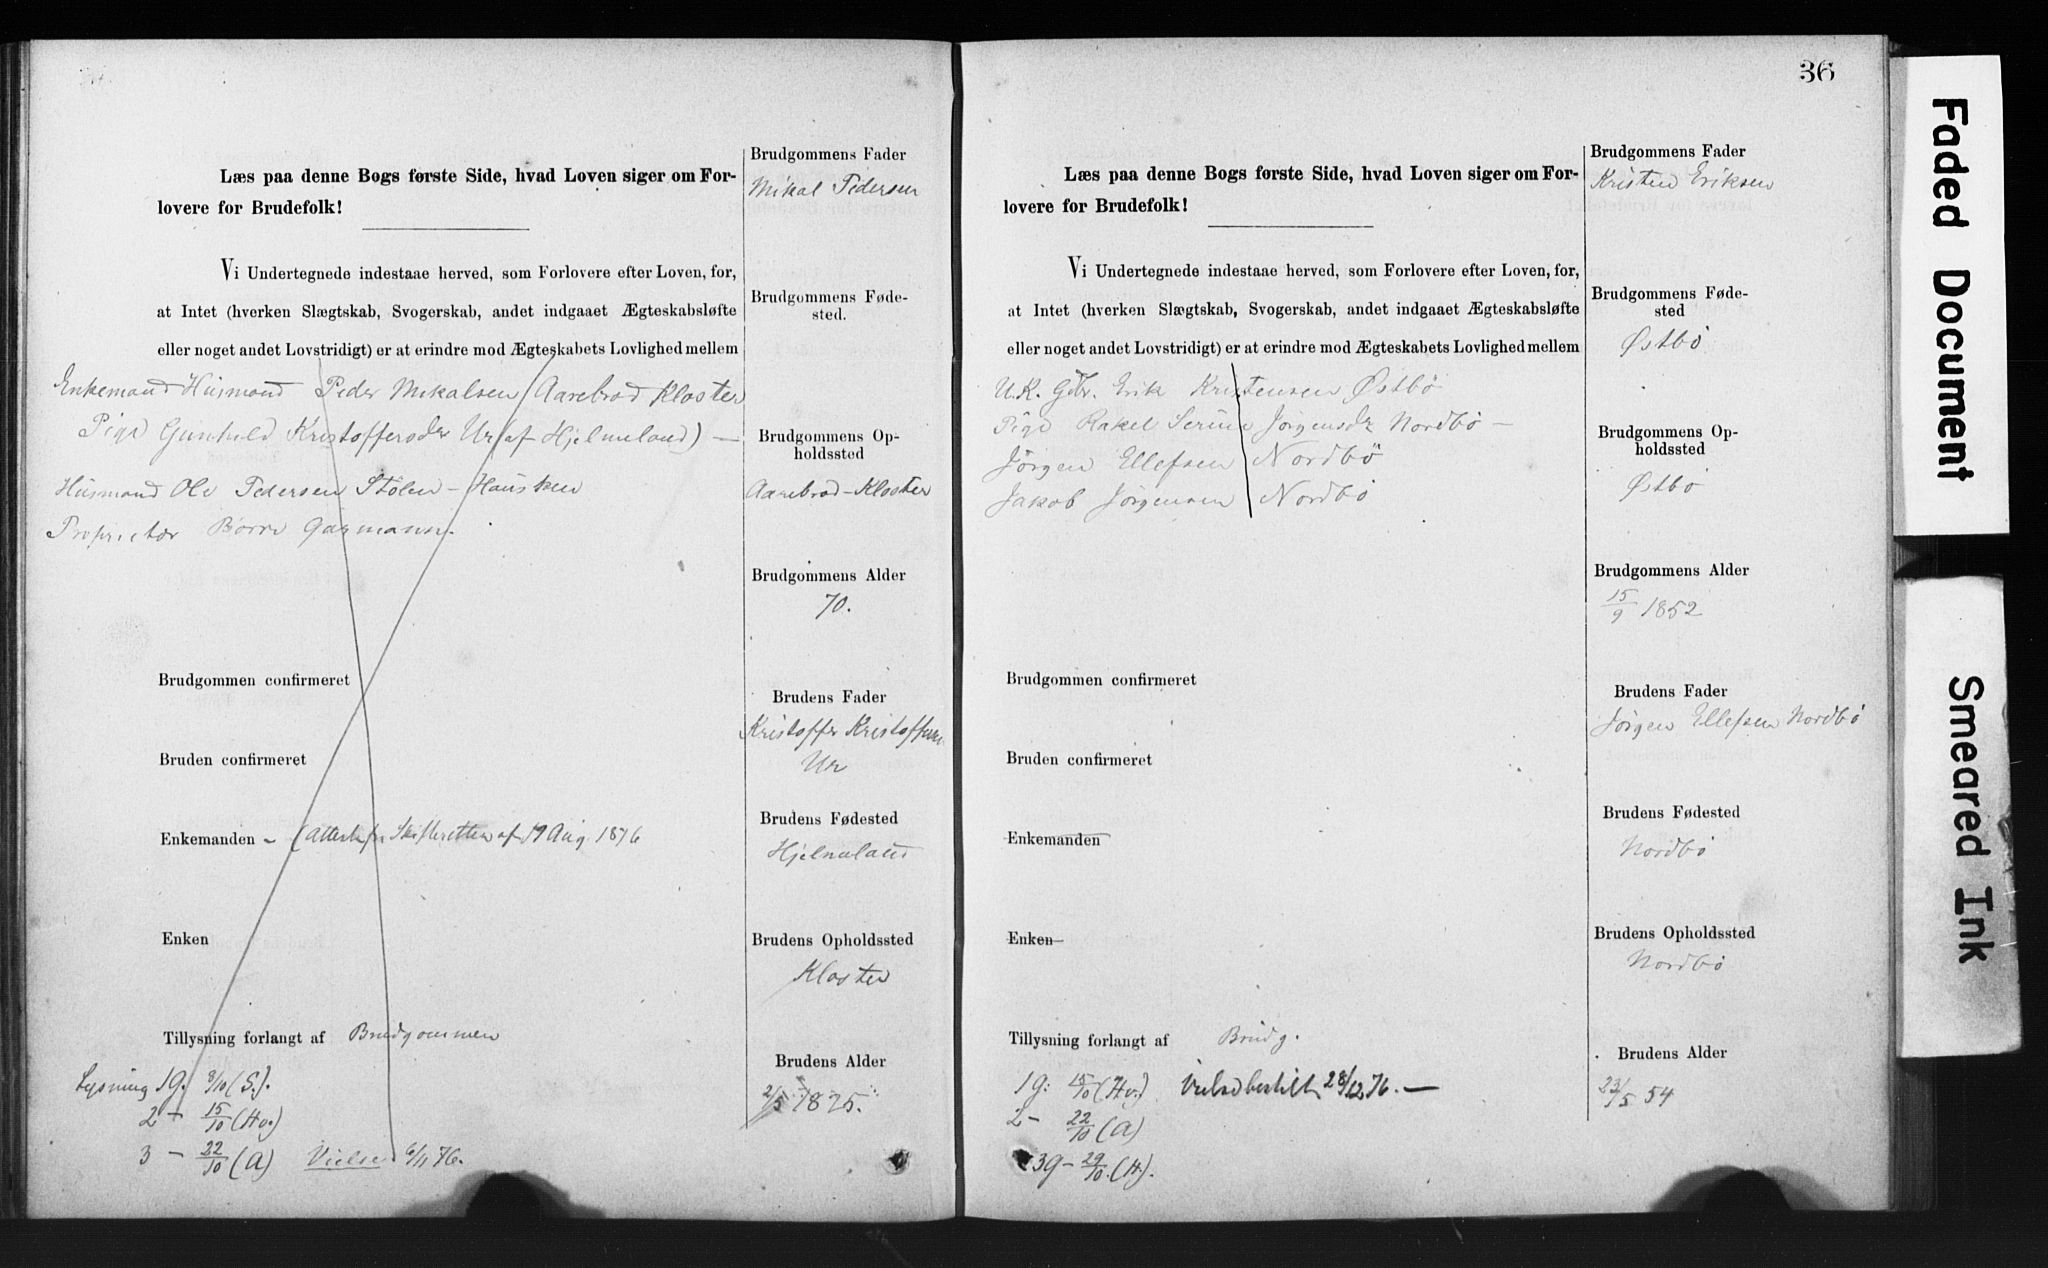 Læs paa denne Bogs første Side, hvad Loven siger om For-
lovere for Brudefolk!
Vi Undertegnede indestaae herved, som Forlovere efter Loven, for,
at Intet (hverken Slægtskab, Svogerskab, andet indgaaet Ægteskabsløfte
eller noget andet Lovstridigt) er at erindre mod Ægteskabets Lovlighed mellem
Enkemand Husmand Peder Mikalsen Aarebrod Kloster
Pige Gunhild Kristoffersdtr Ur (af Hjelmeland) —
Husmand Ole Pedersen Stølen - Hausken
Proprietær Børre Garmann.
Brudgommen confirmeret
Bruden confirmeret
Enkemanden - (Attest fr Skifteretten af 19 Aug. 1876
Enken
Tillysning forlangt af Brudgommen
Lysning 1g. 8/10 (S.).
2 - 15/10 (Hv.)
3 - 22/10 (A) Vielse 6/11 76.
Brudgommens Fader
Mikal Pedersen
Brudgommens Føde-
sted.
Brudgommens Op-
holdssted
Aarebrod - Kloster
Brudgommens Alder
70.
Brudens Fader
Kristoffer Kristoffersen
Ur
Brudens Fødested
Hjelmeland
Brudens Opholdssted
Kloster
Brudens Alder
2/5 1825.
36
Læs paa denne Bogs første Side, hvad Loven siger om For-
lovere for Brudefolk!
Vi Undertegnede indestaae herved, som Forlovere efter Loven, for,
at Intet (hverken Slægtskab, Svogerskab, andet indgaaet Ægteskabsløfte
eller noget andet Lovstridigt) er at erindre mod Ægteskabets Lovlighed mellem
U.K. Gbr. Erik Kristensen Østbø
Pige Rakel Serine Jørgensdr Nordbø —
Jørgen Ellefsen Nordbø
Jakob Jørgensen Nordbø
Brudgommen confirmeret
Bruden confirmeret
Enkemanden
Enken
Tillysning forlangt af Brudg.
1g: 15/10 (Hv.) Vielse bestilt 28/12 76. —
2 - 22/10 (A)
3g - 29/10. (H).
Brudgommens Fader
Kristen Eriksen
Brudgommens Føde-
sted
Østbø
Brudgommens Op-
holdssted
Østbø
Brudgommens Alder
15/9 1852
Brudens Fader
Jørgen Ellefsen Nordbø
Brudens Fødested
Nordbø
Brudens Opholdssted
Nordbø
Brudens Alder
23/5 54
Faded Document
Smeared Ink